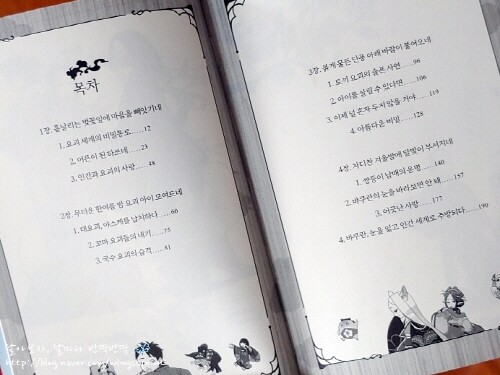 목차
1장. 흩날리는 벚꽃잎에 마음을 빼앗기네
1. 요괴 세계의 비밀 통로……12
2. 어른이 된 하쓰네……23
3. 인간과 요괴의 사랑……48
2장. 무더운 한여름 밤 요괴 아이 모여드네
1. 대요괴, 야스케를 납치하다……60
2. 꼬마 요괴들의 내기……75
3. 국수 요괴의 습격……81
3장. 붉게 물든 단풍 아래 바람이 불어오네
1. 토끼 요괴의 슬픈 사연……96
2. 아이를 살릴 수 있다면……106
3. 이제 널 혼자 두지 않을 거야……119
4. 아름다운 비밀……128
4장. 차디찬 겨울밤에 달빛이 부서지네
1. 쌍둥이 남매의 운명……140
2. 먀쿠란의 눈을 바라보면 안 돼……157
3. 어긋난 사랑……177
4. 먀쿠란, 눈을 잃고 인간 세계로 추방되다……190
http://blog.naver.com/